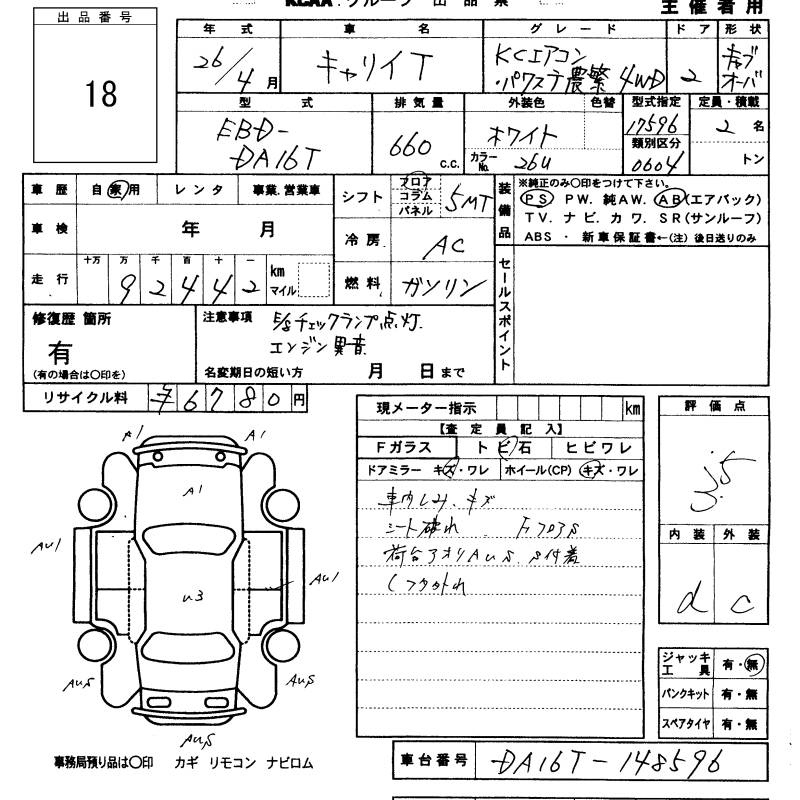 KCAA.グループ 出 品 票
主 催 者 用
出 品 番 号
18
年 式
26/4月
車 名
キャリイT
グ レ ー ド
KCエアコン
・パワステ農繁 4WD
ド ア
2
形 状
キャブ
オーバ
型 式
EBD-
DA16T
排 気 量
660 c.c.
外装色
色替
ホワイト
カラーNo. 26U
型式指定
17596
類別区分
0604
定員・積載
2 名
トン
車 歴
自 家 用
レ ン タ
事業.営業車
車 検
年 月
走 行
十万 万 千 百 十 一
9 2 4 4 2
km
マイル
シフト
フロア
コラム
パネル
5MT
冷 房
AC
燃 料
ガソリン
装備品
※純正のみ〇印をつけて下さい。
PS PW. 純AW. AB(エアバック)
TV. ナビ. カワ. SR(サンルーフ)
ABS ・ 新車保証書←(注) 後日送りのみ
セールスポイント
修復歴 箇所
有
(有の場合は〇印を)
注意事項
E/gチェックランプ点灯.
エンジン異音
名変期日の短い方 月 日まで
リサイクル料
¥ 6 7 8 0 円
現メーター指示
km
【査 定 員 記 入】
Fガラス
ト ビ 石
ヒビワレ
ドアミラー キズ・ワレ
ホイール(CP) キズ・ワレ
車内しみ.キズ
シート破れ. FフロアS
荷台アオリAUS. S付着
評 価 点
3.5
内 装
外 装
d
c
ジャッキ
工 具
有・無
パンクキット
有・無
スペアタイヤ
有・無
A1
A1
A1
AU1
AU1
U3
AUS
AUS
AUS
事務局預り品は〇印 カギ リモコン ナビロム
車台番号
DA16T-148596